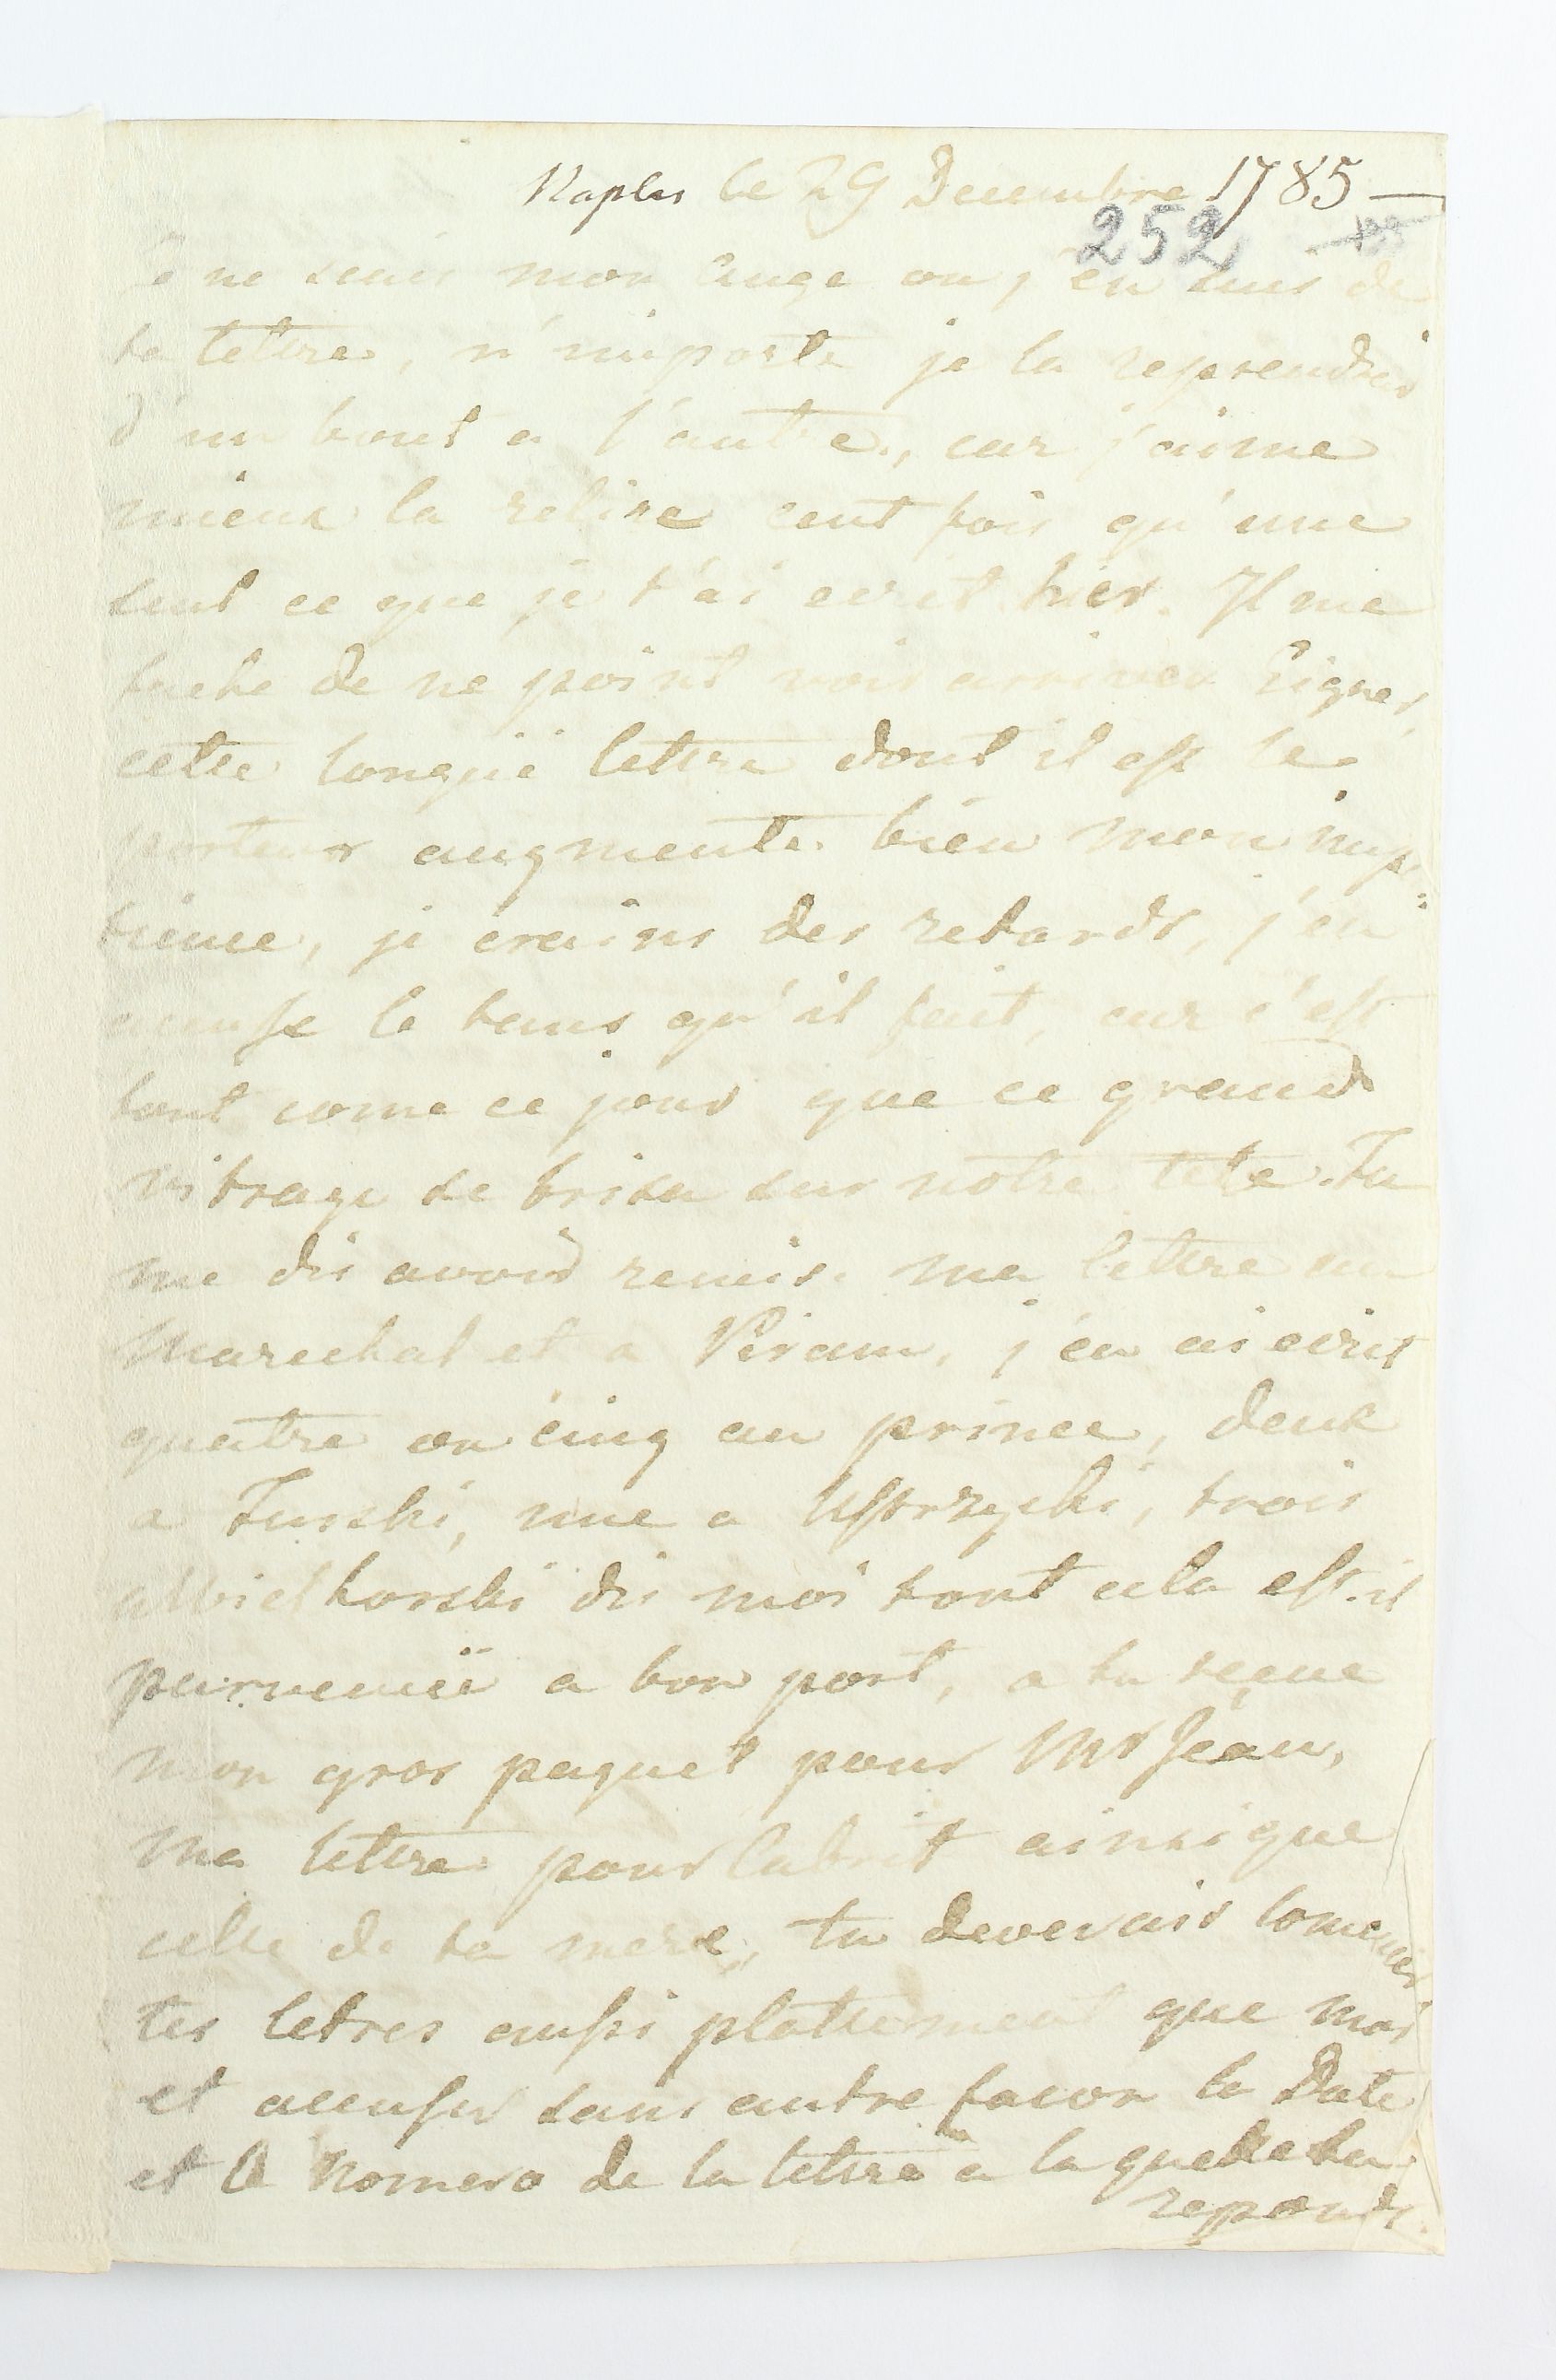 Naples le 29 Decembre 1785 —
252
Je ne scais mon ange ou j'en suis de
ta lettre, n'importe je la reprendrai
d'un bout a l'autre, car j'aime
mieux la relire cent fois qu'une
seul ce que je t'ai ecrit hier. Il me
tache de ne point voir arriver Vigne,
cette longuë lettre dont il est le
porteur augmente bien mon impa
tience, je crains des retards, j'en
accuse le tems qu'il fait, car c'est
tout come ce jour que ce grand
vitrage se brisa sur notre tete. Tu
me dis avoir remis ma lettre au
Marechal et a Piram, j'en ai ecrit
quatre ou cinq au prince, deux
a Turski, une a Ustrzycki, trois
a Wielhorski dis moi tout cela est-il
parvenuë a bon port, a tu reçue
mon gros paquet pour Mr Jean,
ma lettre pour Cabrit ainsi que
celle de ta mere, tu devevais comencer
tes letres aussi plattement que moi
et accuser sans autre facon la Date
et le Nomero de la lettre a la quelle tu
reponds.